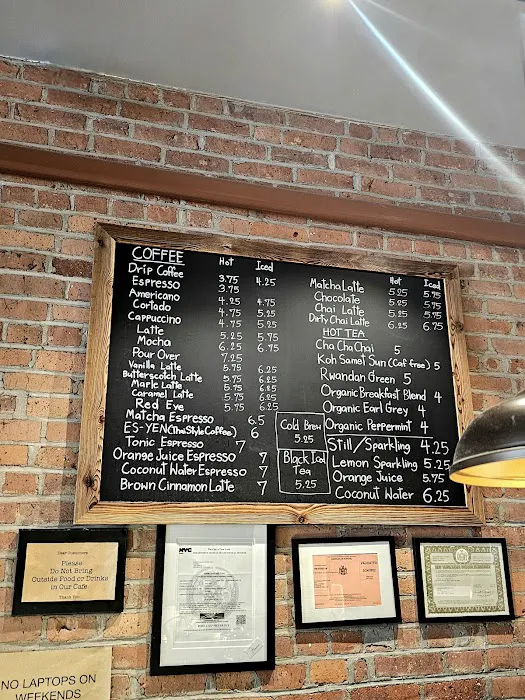 COFFEE Hot Iced
Drip Coffee 3.75 4.25
Espresso 3.75
Americano 4.25 4.75
Cortado 4.75 5.25
Cappuccino 4.75 5.25
Latte 5.25 5.75
Mocha 6.25 6.75
Pour Over 7.25
Vanilla Latte 5.75 6.25
Butterscotch Latte 5.75 6.25
Maple Latte 5.75 6.25
Caramel Latte 5.75 6.25
Red Eye 5.75 6.25
Matcha Espresso 6.5
ES-YEN (Thai Style Coffee) 6
Tonic Espresso 7
Orange Juice Espresso 7
Coconut Water Espresso 7
Brown Cinnamon Latte 7
Cold Brew
5.25
Black Iced
Tea
5.25
Hot Iced
Matcha Latte 5.25 5.75
Chocolate 5.25 5.75
Chai Latte 5.25 5.75
Dirty Chai Latte 6.25 6.75
HOT TEA
Cha Cha Chai 5
Koh Samet Sun (Caf free) 5
Rwandan Green 5
Organic Breakfast Blend 4
Organic Earl Grey 4
Organic Peppermint 4
Still/Sparkling 4.25
Lemon Sparkling 5.25
Orange Juice 5.75
Coconut Water 6.25
Dear Customers
Please
Do Not Bring
Outside Food or Drinks
in Our Cafe
Thank You
NYC
NO LAPTOPS ON
WEEKENDS